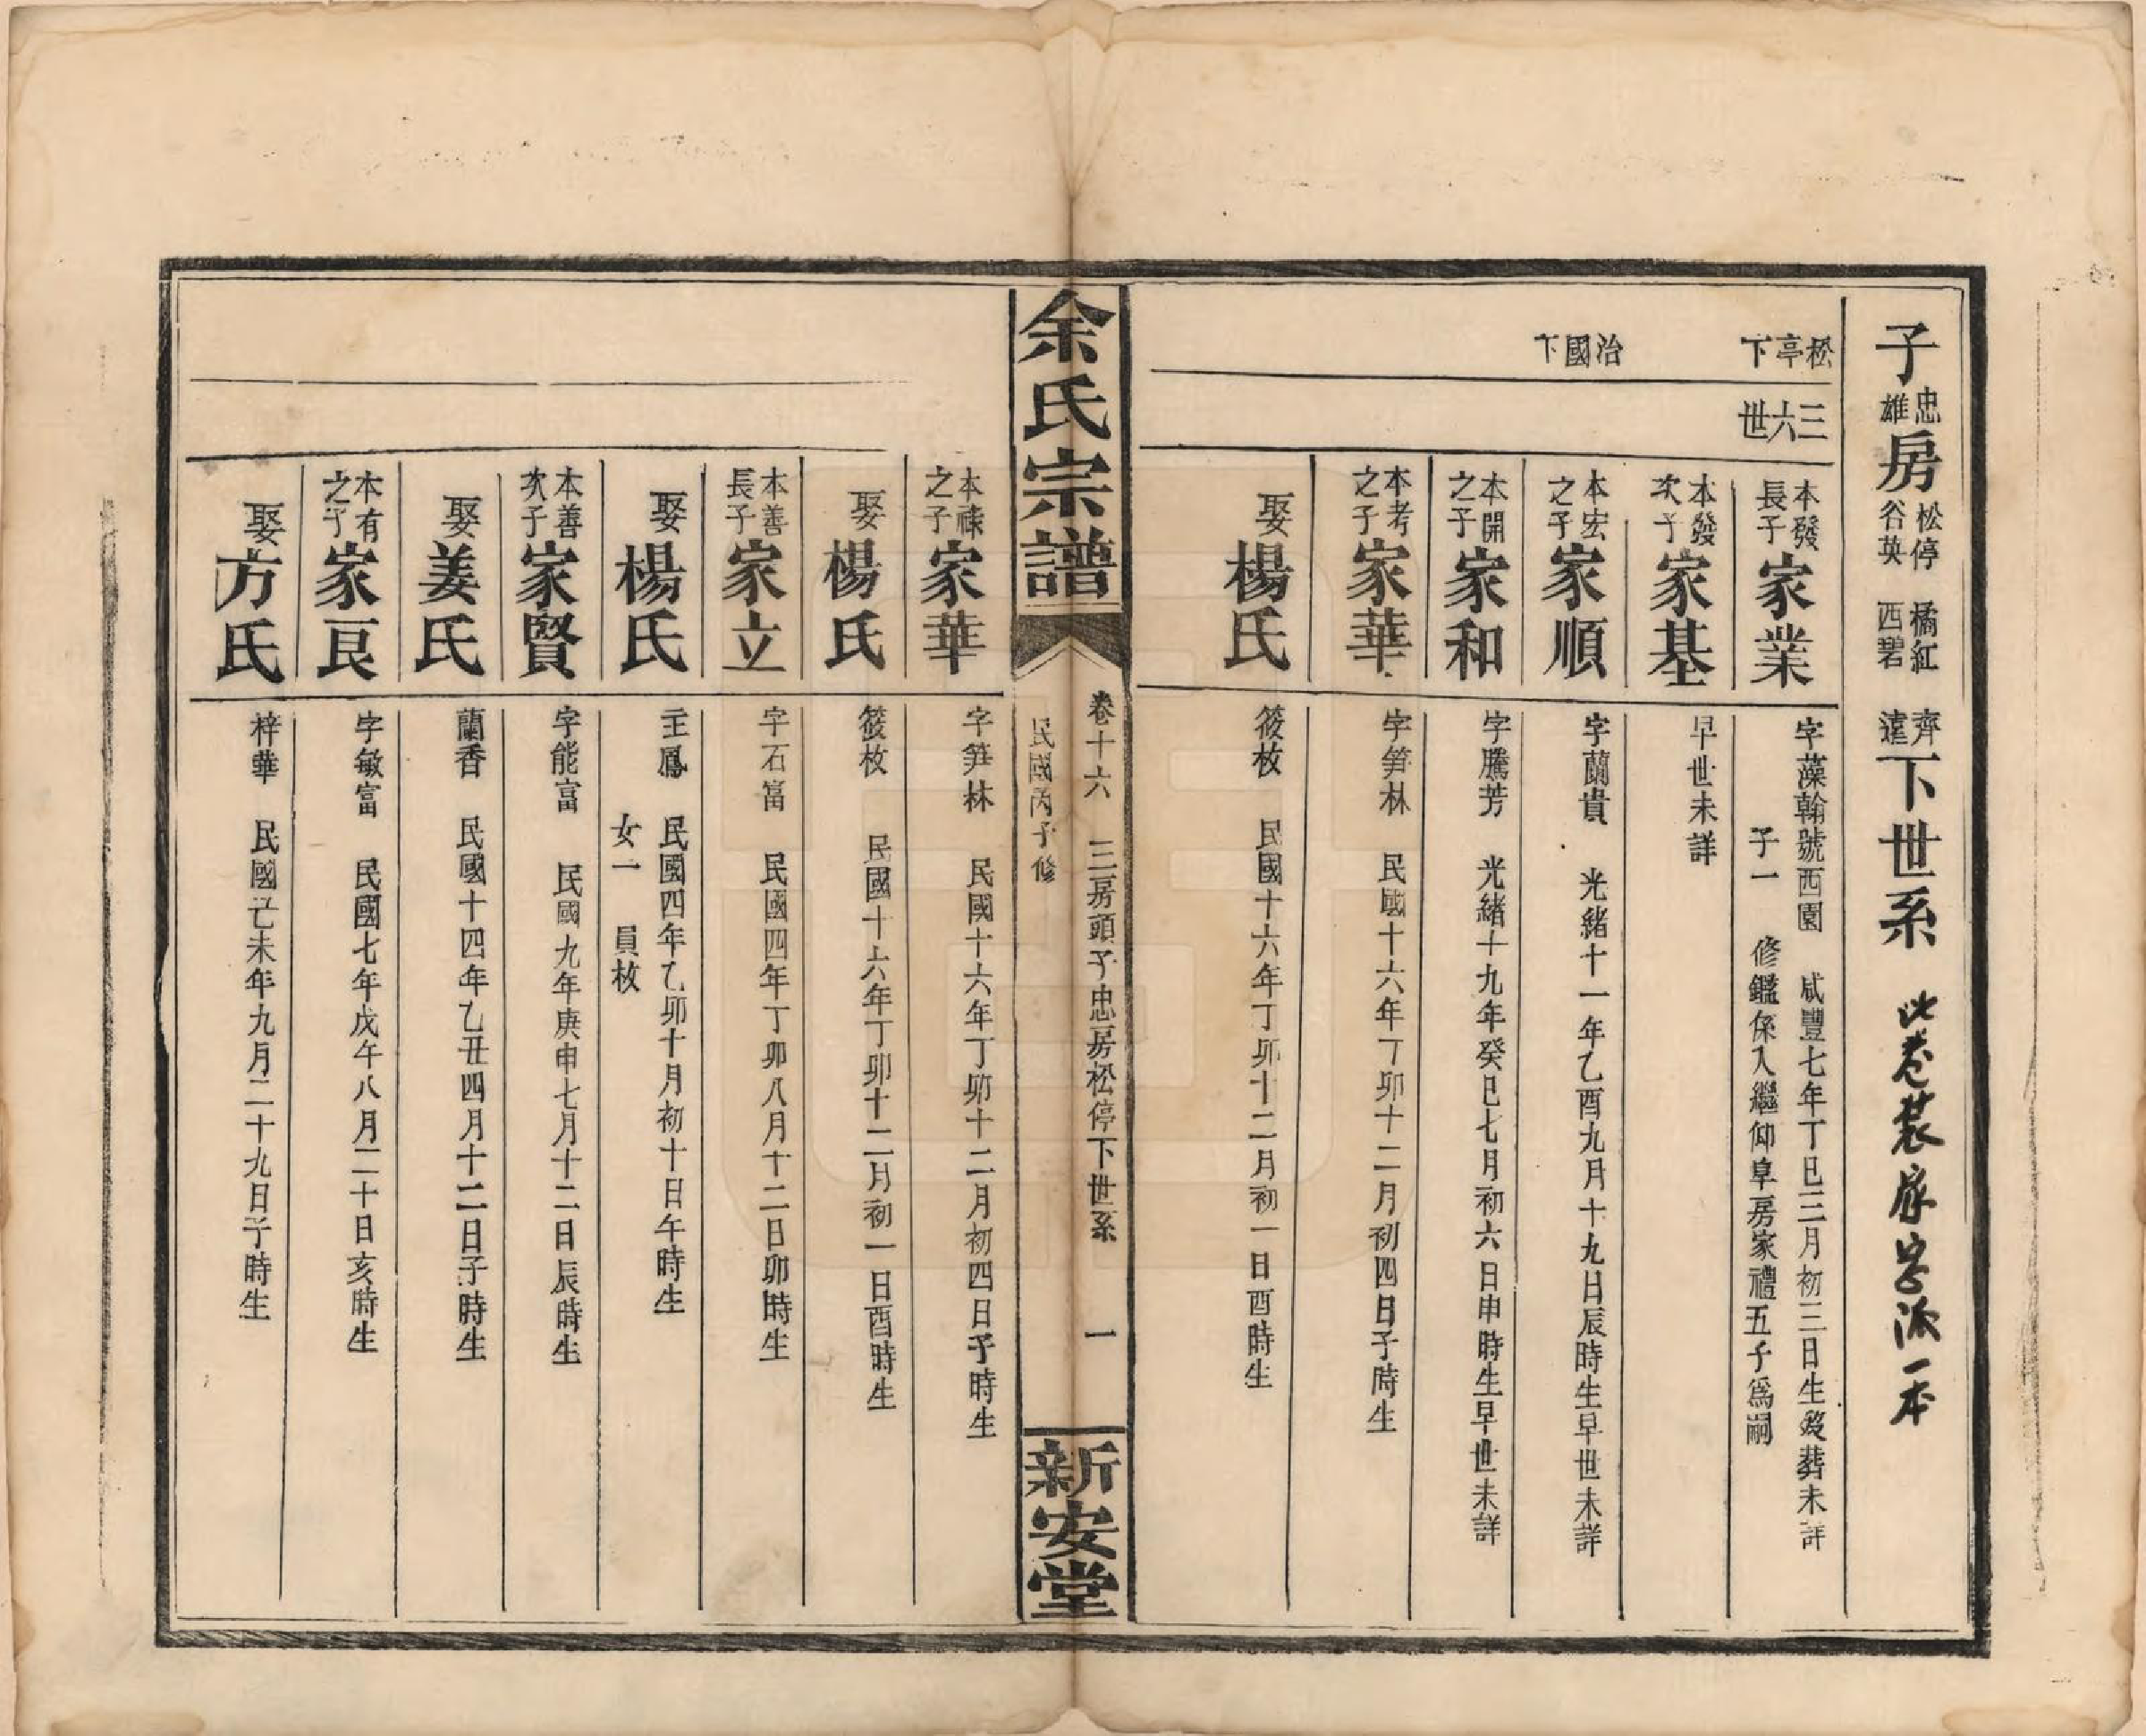 子忠雄房松停谷英橘紅西碧齊遠下世系
此卷裝家字派一本
松亭下
治國下
三六世
本發長子家業
字藻翰號西園 咸豐七年丁巳三月初三日生歿葬未詳
子一 修鑑係入繼仰阜房家禮五子爲嗣
本發次子家基
早世未詳
本宏之子家順
字蘭貴 光緒十一年乙酉九月十九日辰時生早世未詳
本開之子家和
字騰芳 光緒十九年癸巳七月初六日申時生早世未詳
本考之子家華
字笋林 民國十六年丁卯十二月初四日子時生
娶楊氏
筱枚 民國十六年丁卯十二月初一日酉時生
余氏宗譜
卷十六 三房頭子忠房松停下世系 一
民國丙子修
新安堂
本祿之子家華
字笋林 民國十六年丁卯十二月初四日子時生
娶楊氏
筱枚 民國十六年丁卯十二月初一日酉時生
本善長子家立
字石富 民國四年丁卯八月十二日卯時生
娶楊氏
玉鳳 民國四年乙卯十月初十日午時生
女一 員枚
本善次子家賢
字能富 民國九年庚申七月十二日辰時生
娶姜氏
蘭香 民國十四年乙丑四月十二日子時生
本有之子家良
字敏富 民國七年戊午八月二十日亥時生
娶方氏
梓華 民國己未年九月二十九日子時生